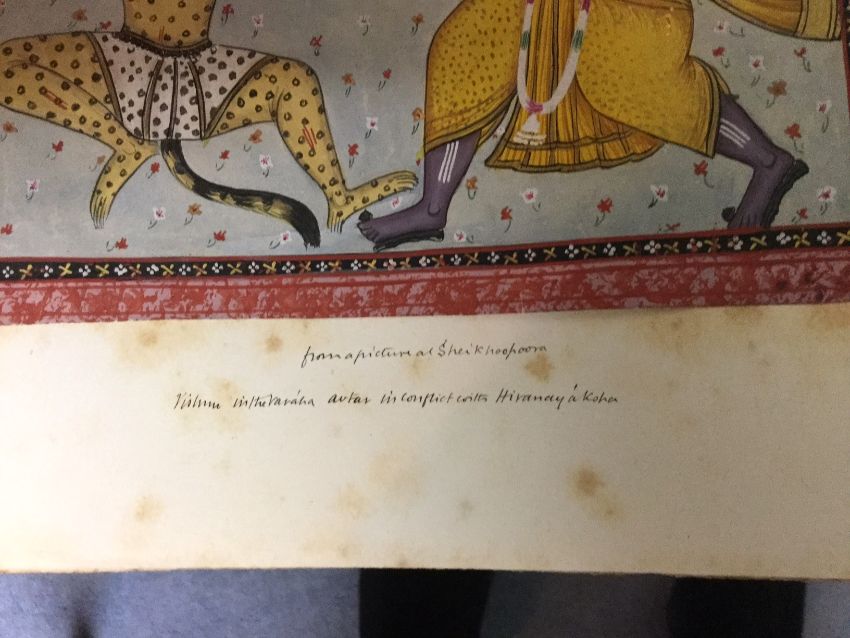 from a picture at Sheikhoopoora
Vishnu in the Varáha avtar in conflict with Hiranayáksha